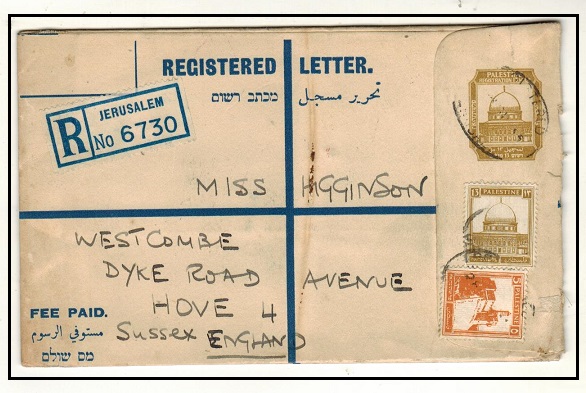 REGISTERED LETTER.
מכתב רשום تحرير مسجل
R JERUSALEM
No 6730
MISS HIGGINSON
WESTCOMBE
DYKE ROAD AVENUE
HOVE 4
Sussex ENGLAND
FEE PAID.
مستوفي الرسوم
מס שולם
PALESTINE
REGISTRATION
13 PALESTINE ١٣
5